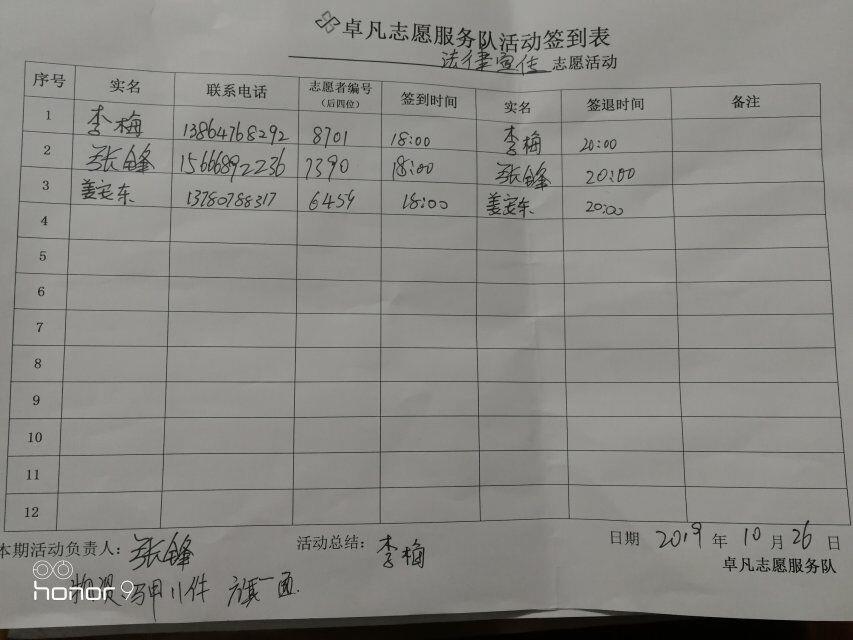 卓凡志愿服务队活动签到表
法律宣传 志愿活动
序号 实名 联系电话 志愿者编号(后四位) 签到时间 实名 签退时间 备注
1 李梅 13864768292 8701 18:00 李梅 20:00
2 张锋 15668892236 7390 18:00 张锋 20:00
3 姜定东 13780788317 6454 18:00 姜定东 20:00
4
5
6
7
8
9
10
11
12
本期活动负责人:张锋 活动总结:李梅 日期 2019 年 10 月 26 日
卓凡志愿服务队
物资 马甲11件 旗一面.
honor 9